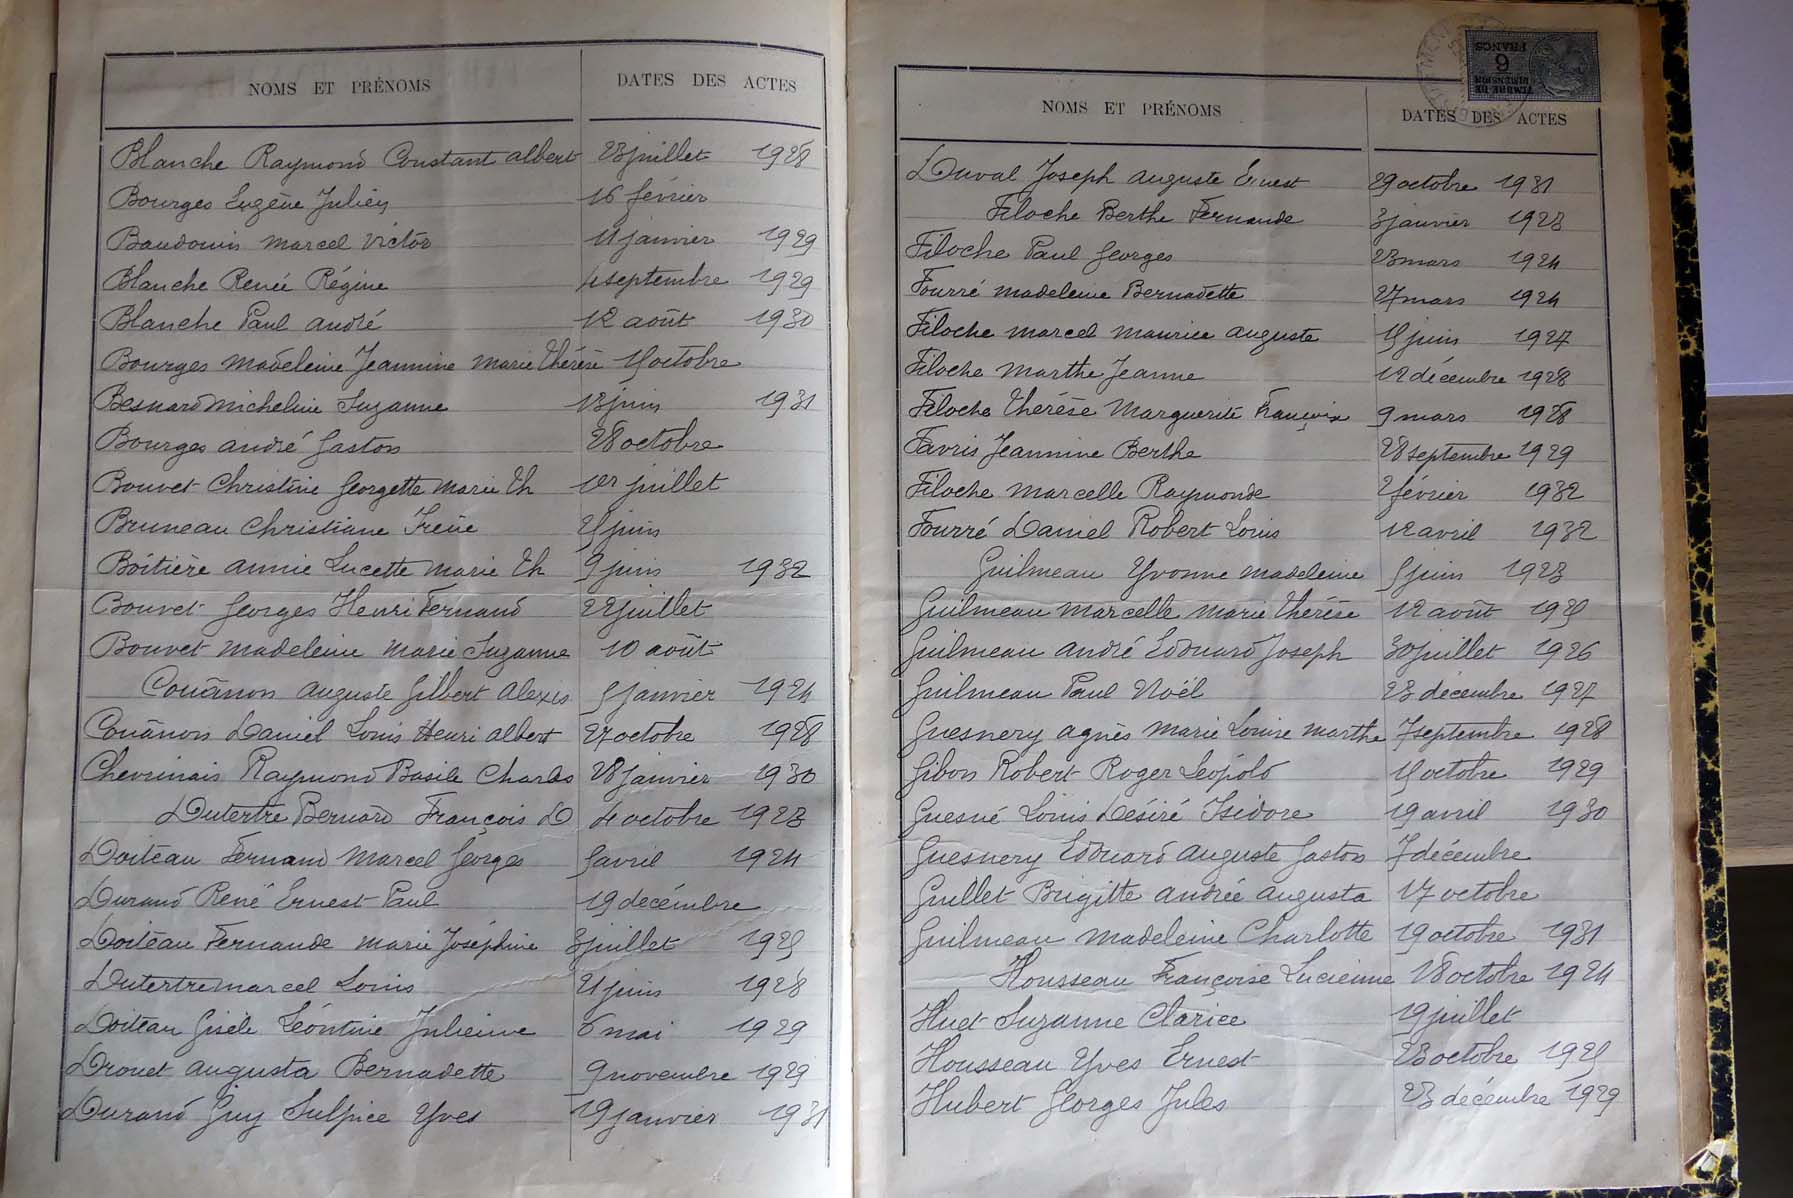 NOMS ET PRÉNOMS DATES DES ACTES
Blanche Raymond Constant Albert 23 juillet 1928
Bourges Eugène Julien 16 février
Baudouin Marcel Victor 11 janvier 1929
Blanche Renée Régine 4 septembre 1929
Blanche Paul André 12 août 1930
Bourges Madeleine Jeannine Marie Thérèse octobre
Besnard Micheline Suzanne 13 juin 1931
Bourges André Gaston 28 octobre
Bouvet Christine Georgette Marie Th 1er juillet
Bruneau Christiane Irène juin
Boitière Annie Lucette Marie Th 9 juin 1932
Bouvet Georges Henri Fernand 22 juillet
Bouvet Madeleine Marie Suzanne 10 août
Couânon Auguste Gilbert Alexis 5 janvier 1924
Couânon Daniel Louis Henri Albert 27 octobre 1928
Chevrinais Raymond Basile Charles 28 janvier 1930
Dutertre Bernard François D 4 octobre 1923
Doiteau Fernand Marcel Georges 5 avril 1924
Durand René Ernest Paul 19 décembre
Doiteau Fernande Marie Joséphine 3 juillet 1925
Dutertre Marcel Louis 21 juin 1928
Doiteau Gisèle Léontine Julienne 6 mai 1929
Drouet Augusta Bernadette 9 novembre 1929
Durand Guy Sulpice Yves 19 janvier 1931
TIMBRE DE
DIMENSION
9
FRANCS
NOMS ET PRÉNOMS DATES DES ACTES
Duval Joseph Auguste Ernest 29 octobre 1931
Filoche Berthe Fernande 3 janvier 1923
Filoche Paul Georges 23 mars 1924
Fourré Madeleine Bernadette 27 mars 1924
Filoche Marcel Maurice Auguste juin 1927
Filoche Marthe Jeanne 12 décembre 1928
Filoche Thérèse Marguerite 9 mars 1928
Favris Jeannine Berthe 28 septembre 1929
Filoche Marcelle Raymonde 2 février 1932
Fourré Daniel Robert Louis 12 avril 1932
Guilmeau Yvonne Madeleine 5 juin 1923
Guilmeau Marcelle Marie Thérèse 12 août 1925
Guilmeau André Edouard Joseph 30 juillet 1926
Guilmeau Paul Noël 23 décembre 1927
Guesnery Agnès Marie Louise Marthe 7 septembre 1928
Gibon Robert Roger Léopold octobre 1929
Guesné Louis Désiré Isidore 19 avril 1930
Guesnery Edouard Auguste Gaston 7 décembre
Guillet Brigitte Andrée Augusta 17 octobre
Guilmeau Madeleine Charlotte 19 octobre 1931
Housseau Françoise Lucienne 18 octobre 1924
Huet Suzanne Clarice 19 juillet
Housseau Yves Ernest 23 octobre 1925
Hubert Georges Jules 23 décembre 1929